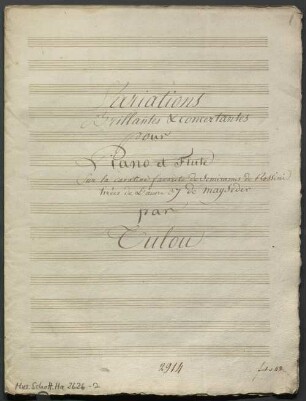 Variations
Brillantes & concertantes
pour
Piano et Flute
Sur la cavatine favorite de Semiramis de Rossini
tirées de L'œuvre 37 de Mayseder
par
Tulou
2914
Mus. Schott. Ha 2626-2